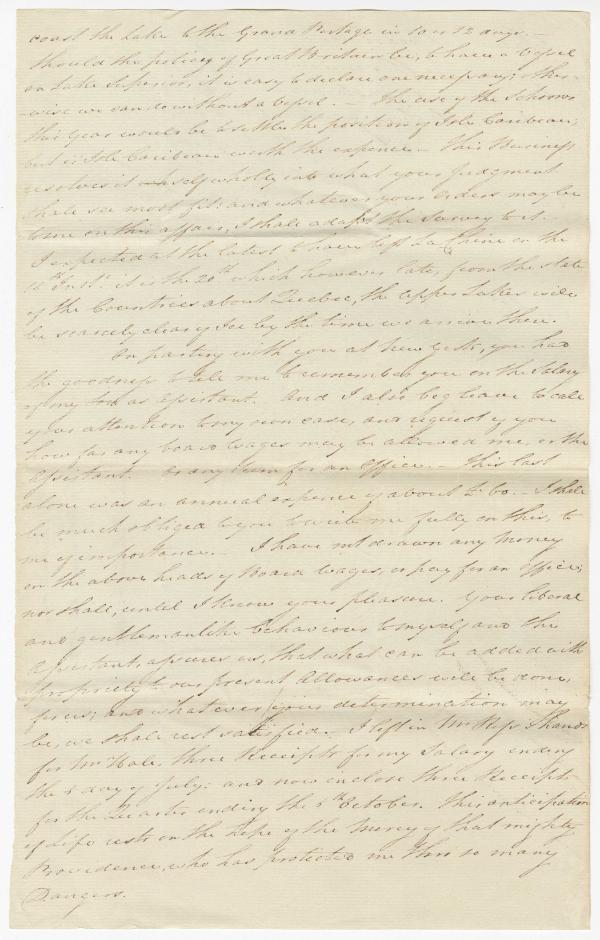 coast the Lake to the Grand Portage in 10 or 12 days. —
Should the policy of Great Britain be, to have a vessel
on Lake Superior, it is easy to declare one necessary; other-
-wise we can do without a vessel. — The use of the Schooner
this year would be to settle the position of Isle Caribeau;
but is Isle Caribeau worth the expence — This Business
resolves itself wholly into what your judgment
shall see most fit: and whatever your orders may be
to me on this affair, I shall adapt the Survey to it. —
I expected at the latest to have left La Chine on the
Inst. It is the 20th which however late, from the state
of the Countries about Quebec, the Upper Lakes will
be scarcely clear of Ice by the time we arrive there.
On parting with you at New York, you had
the goodness to tell me to remember you on the Salary
of my as assistant. And I also beg leave to call
your attention to my own case, and request of you
how far any board wages may be allowed me, or the
Assistant. or any sum for an Office. — This last
alone was an annual expence of about £ 60. — I shall
be much obliged to you to write me fully on this, to
me of importance. — I have not drawn any Money
on the above heads of Board Wages, or pay for an Office;
nor shall, until I know your pleasure. Your liberal
and gentlemanlike behaviour to myself and the
Assistant, assures us, that what can be added with
propriety to our present Allowances will be done,
for us; and whatever your determination may
be, we shall rest satisfied. I left in Mr hands
for Mr Hale, three Receipts for my Salary ending
the 5 day of July: and now inclose three Receipts
for the Quarter ending the 5th October. This anticipation
of Life rests on the hope of the Mercy of that mighty
Providence, who has protected me thro so many
Dangers.